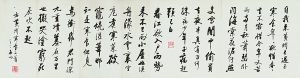 自我來黃州已過三
寒食年年欲惜春春
去不容惜今年又苦
雨兩月秋蕭瑟臥聞
海棠花泥汙燕支雪
闇中偷負去夜半
真有力何殊病少年病起
頭已白
春江欲入戶雨勢
來不已小屋如漁
舟濛濛水雲裏空
庖煮寒菜破竈
燒濕葦那知是寒食但見
烏銜紙君門深
九重墳墓在萬里
也擬哭塗窮死
灰吹不起